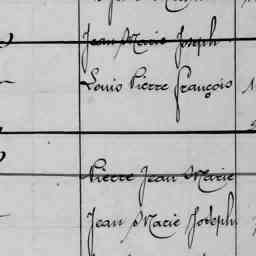 Jean Marie Joseph
Louis Pierre François
Pierre Jean Marie
Jean Marie Joseph